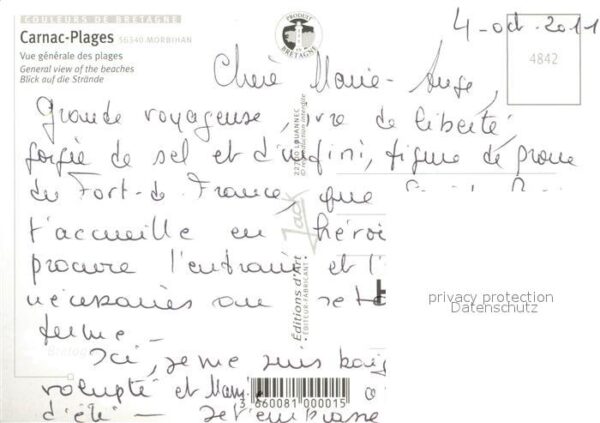 COULEURS DE BRETAGNE
Carnac-Plages 56340 MORBIHAN
Vue générale des plages
General view of the beaches
Blick auf die Strände
PRODUIT EN BRETAGNE
4-oct. 2011
4842
Chère Marie-Ange,
Grande voyageuse, ivre de liberté
forgée de sel et d'infini, figure de proue
du Fort-de France, que
t'accueille en héroï
procure l'entrain et l'
nécessaires au
ferme -
Ici, je me suis baig
volupté et
d'été - Je t'embrasse
Jack
Editions d'Art
EDITEUR-FABRICANT
22700 LOUANNEC
© reproduction interdite
3 660081 000015
privacy protection
Datenschutz